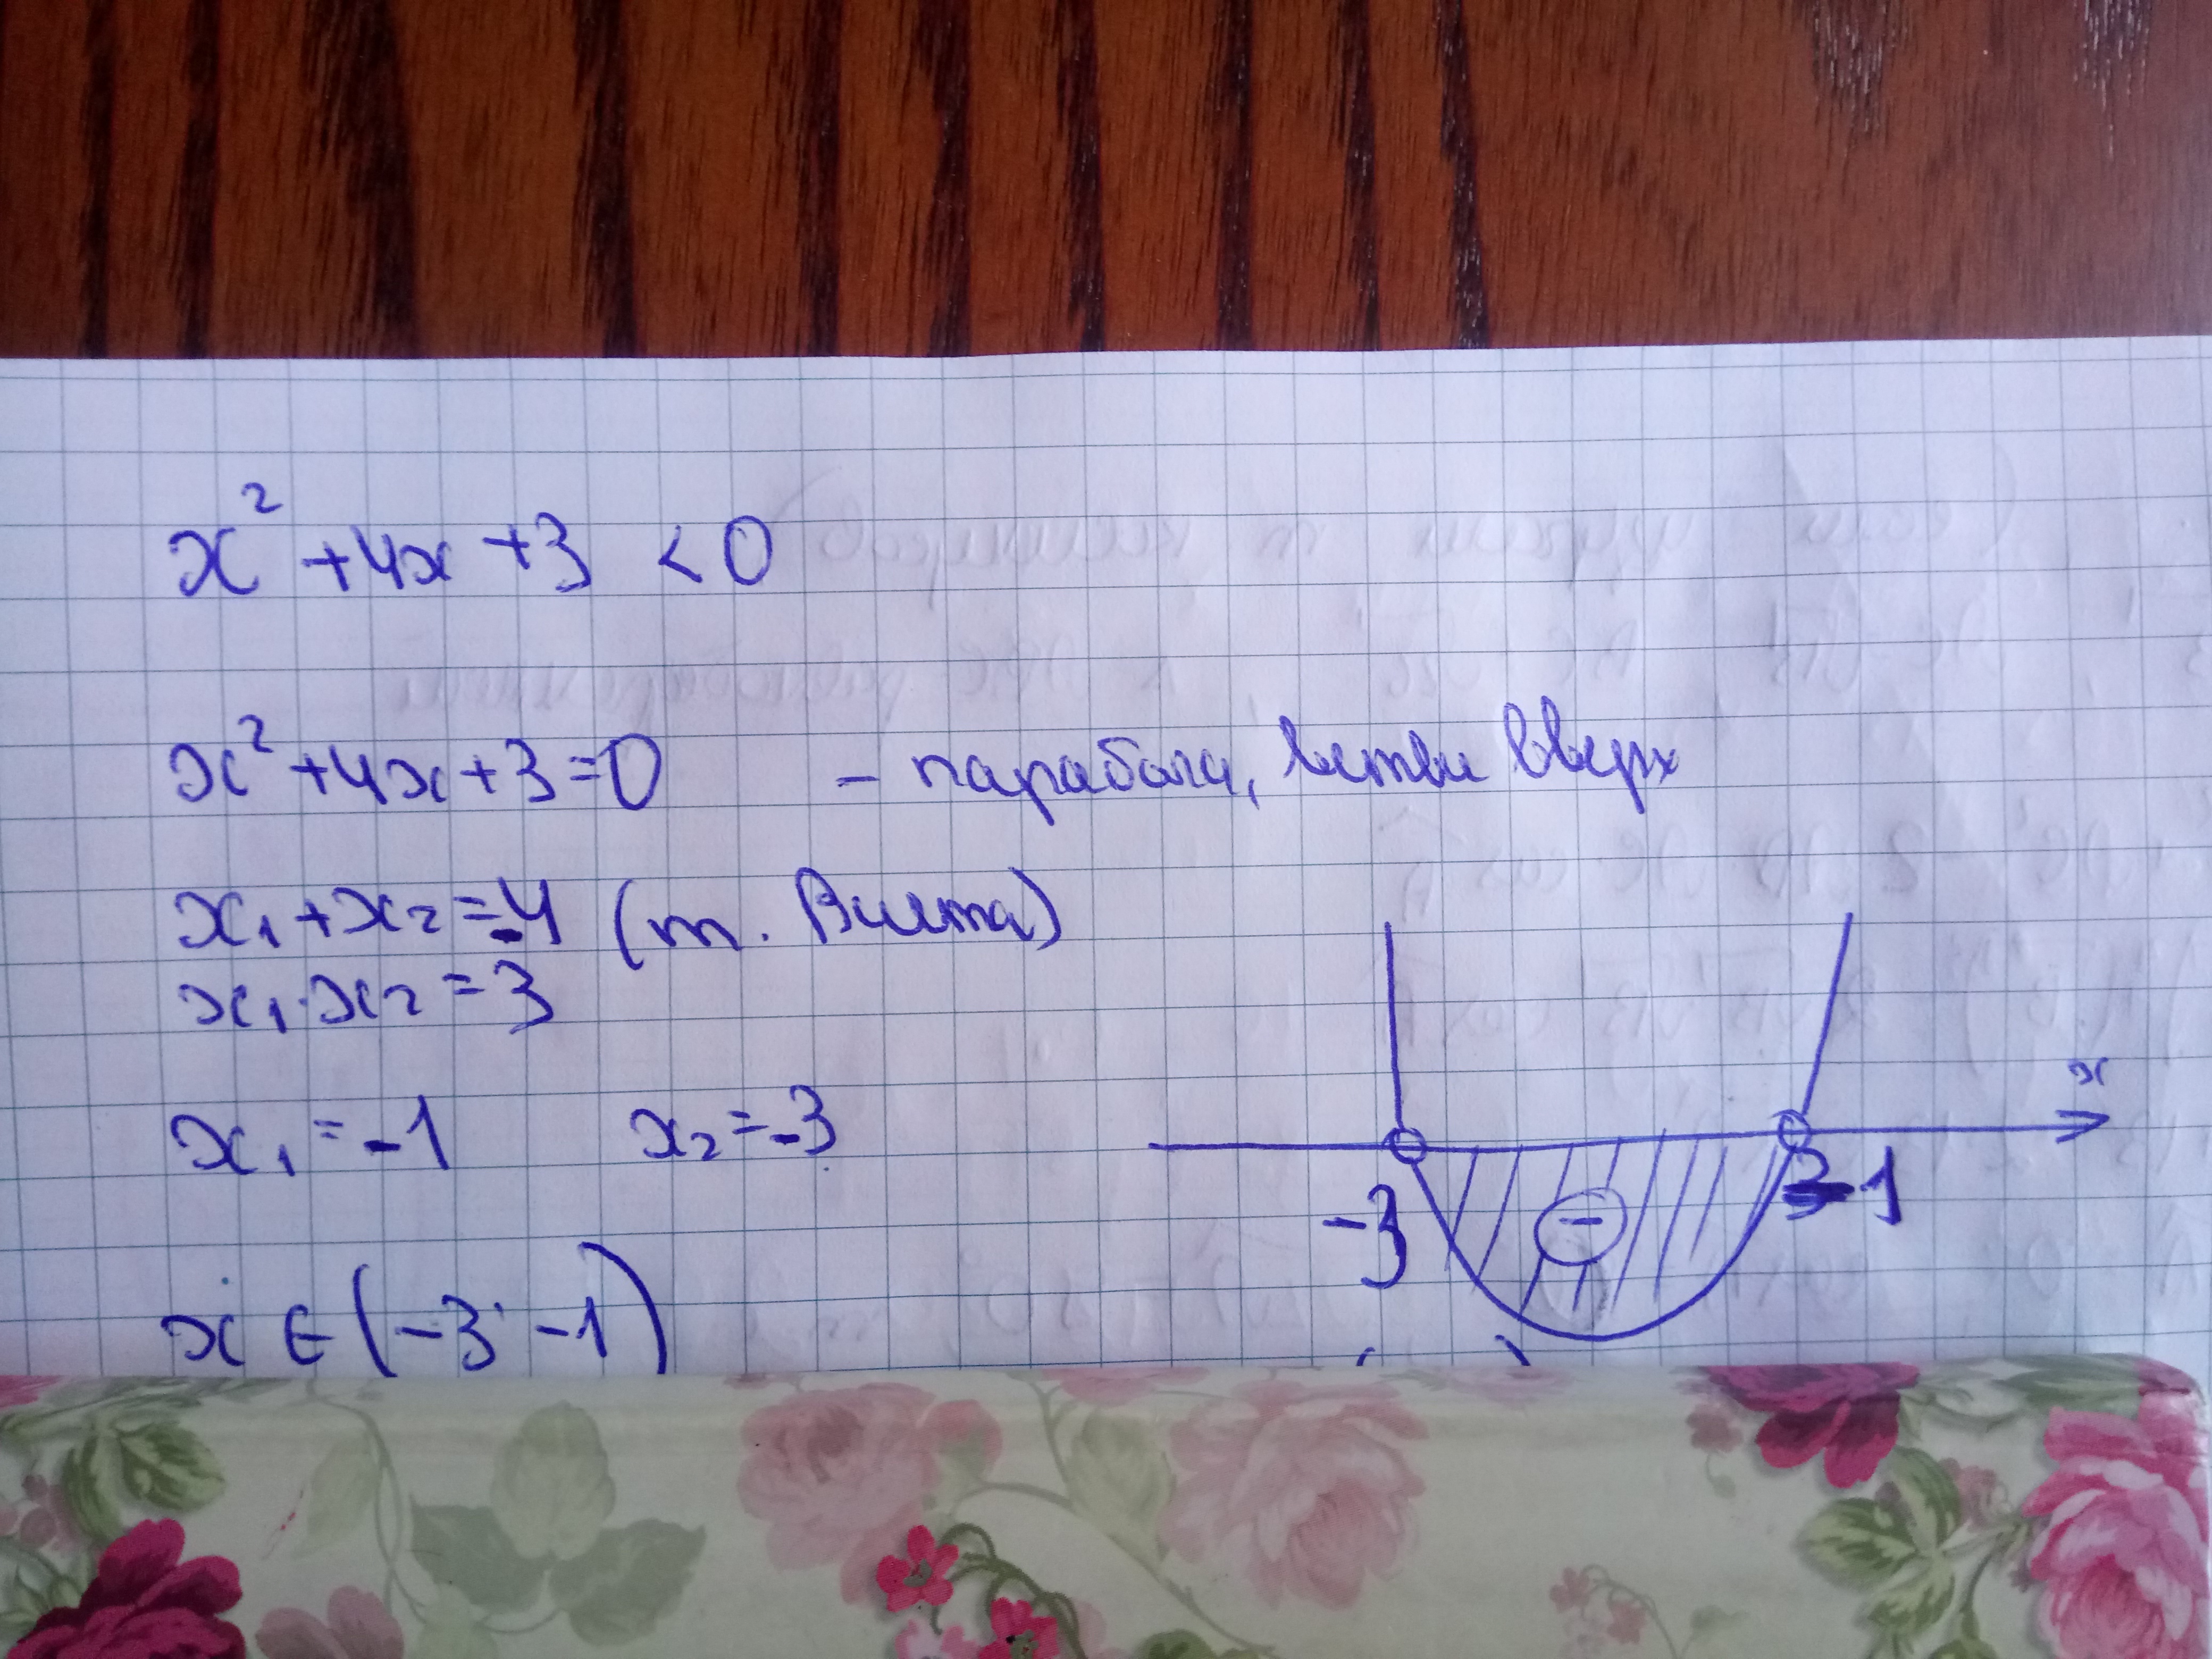 x² + 4x + 3 < 0
x² + 4x + 3 = 0 - парабола, ветви вверх
x₁ + x₂ = -4 (т. Виета)
x₁ · x₂ = 3
x₁ = -1 x₂ = -3
x
-3 - -1
x ∈ (-3; -1)